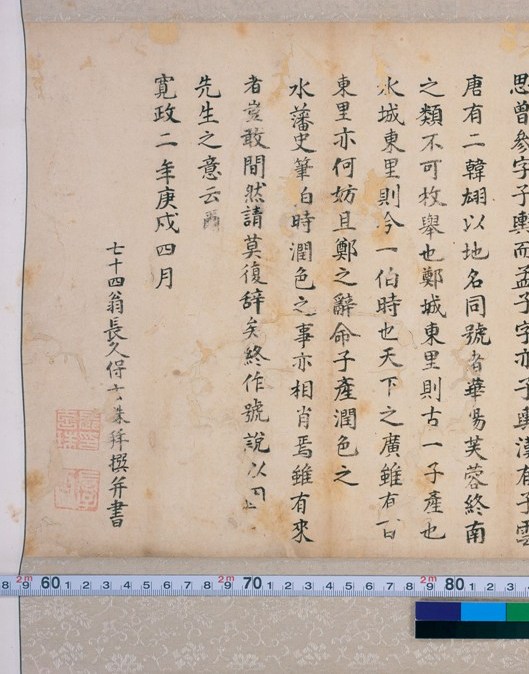 思曾参字子輿而孟子字亦子輿漢有子雲
唐有二韓翃以地名同號者華陽芙蓉終南
之類不可枚舉也鄭城東里則古一子産也
水城東里則今一伯時也天下之廣雖有百
東里亦何妨且鄭之辭命子産潤色之
水藩史筆伯時潤色之事亦相肖焉雖有來
者豈敢間然請莫復辞矣終作號說以
先生之意云爾
寛政二年庚戌四月
七十四翁長久保玄珠拜撰并書
8 9 2m 60 1 2 3 4 5 6 7 8 9 2m 70 1 2 3 4 5 6 7 8 9 2m 80 1 2 3